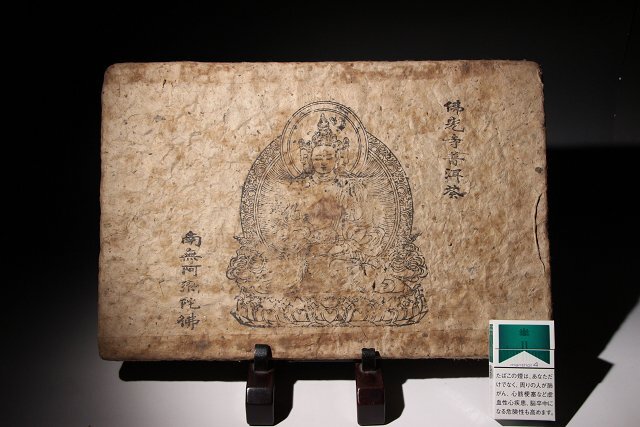 佛光寺普洱茶
南無阿彌陀佛
menthol 4
たばこの煙は、あなただ
けでなく、周りの人が肺
がん、心筋梗塞など虚
血性心疾患、脳卒中に
なる危険性も高めます。